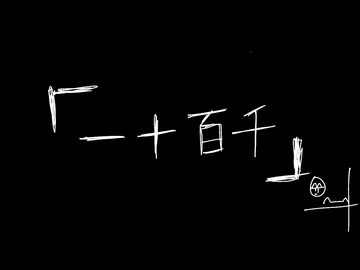 「一十百千」